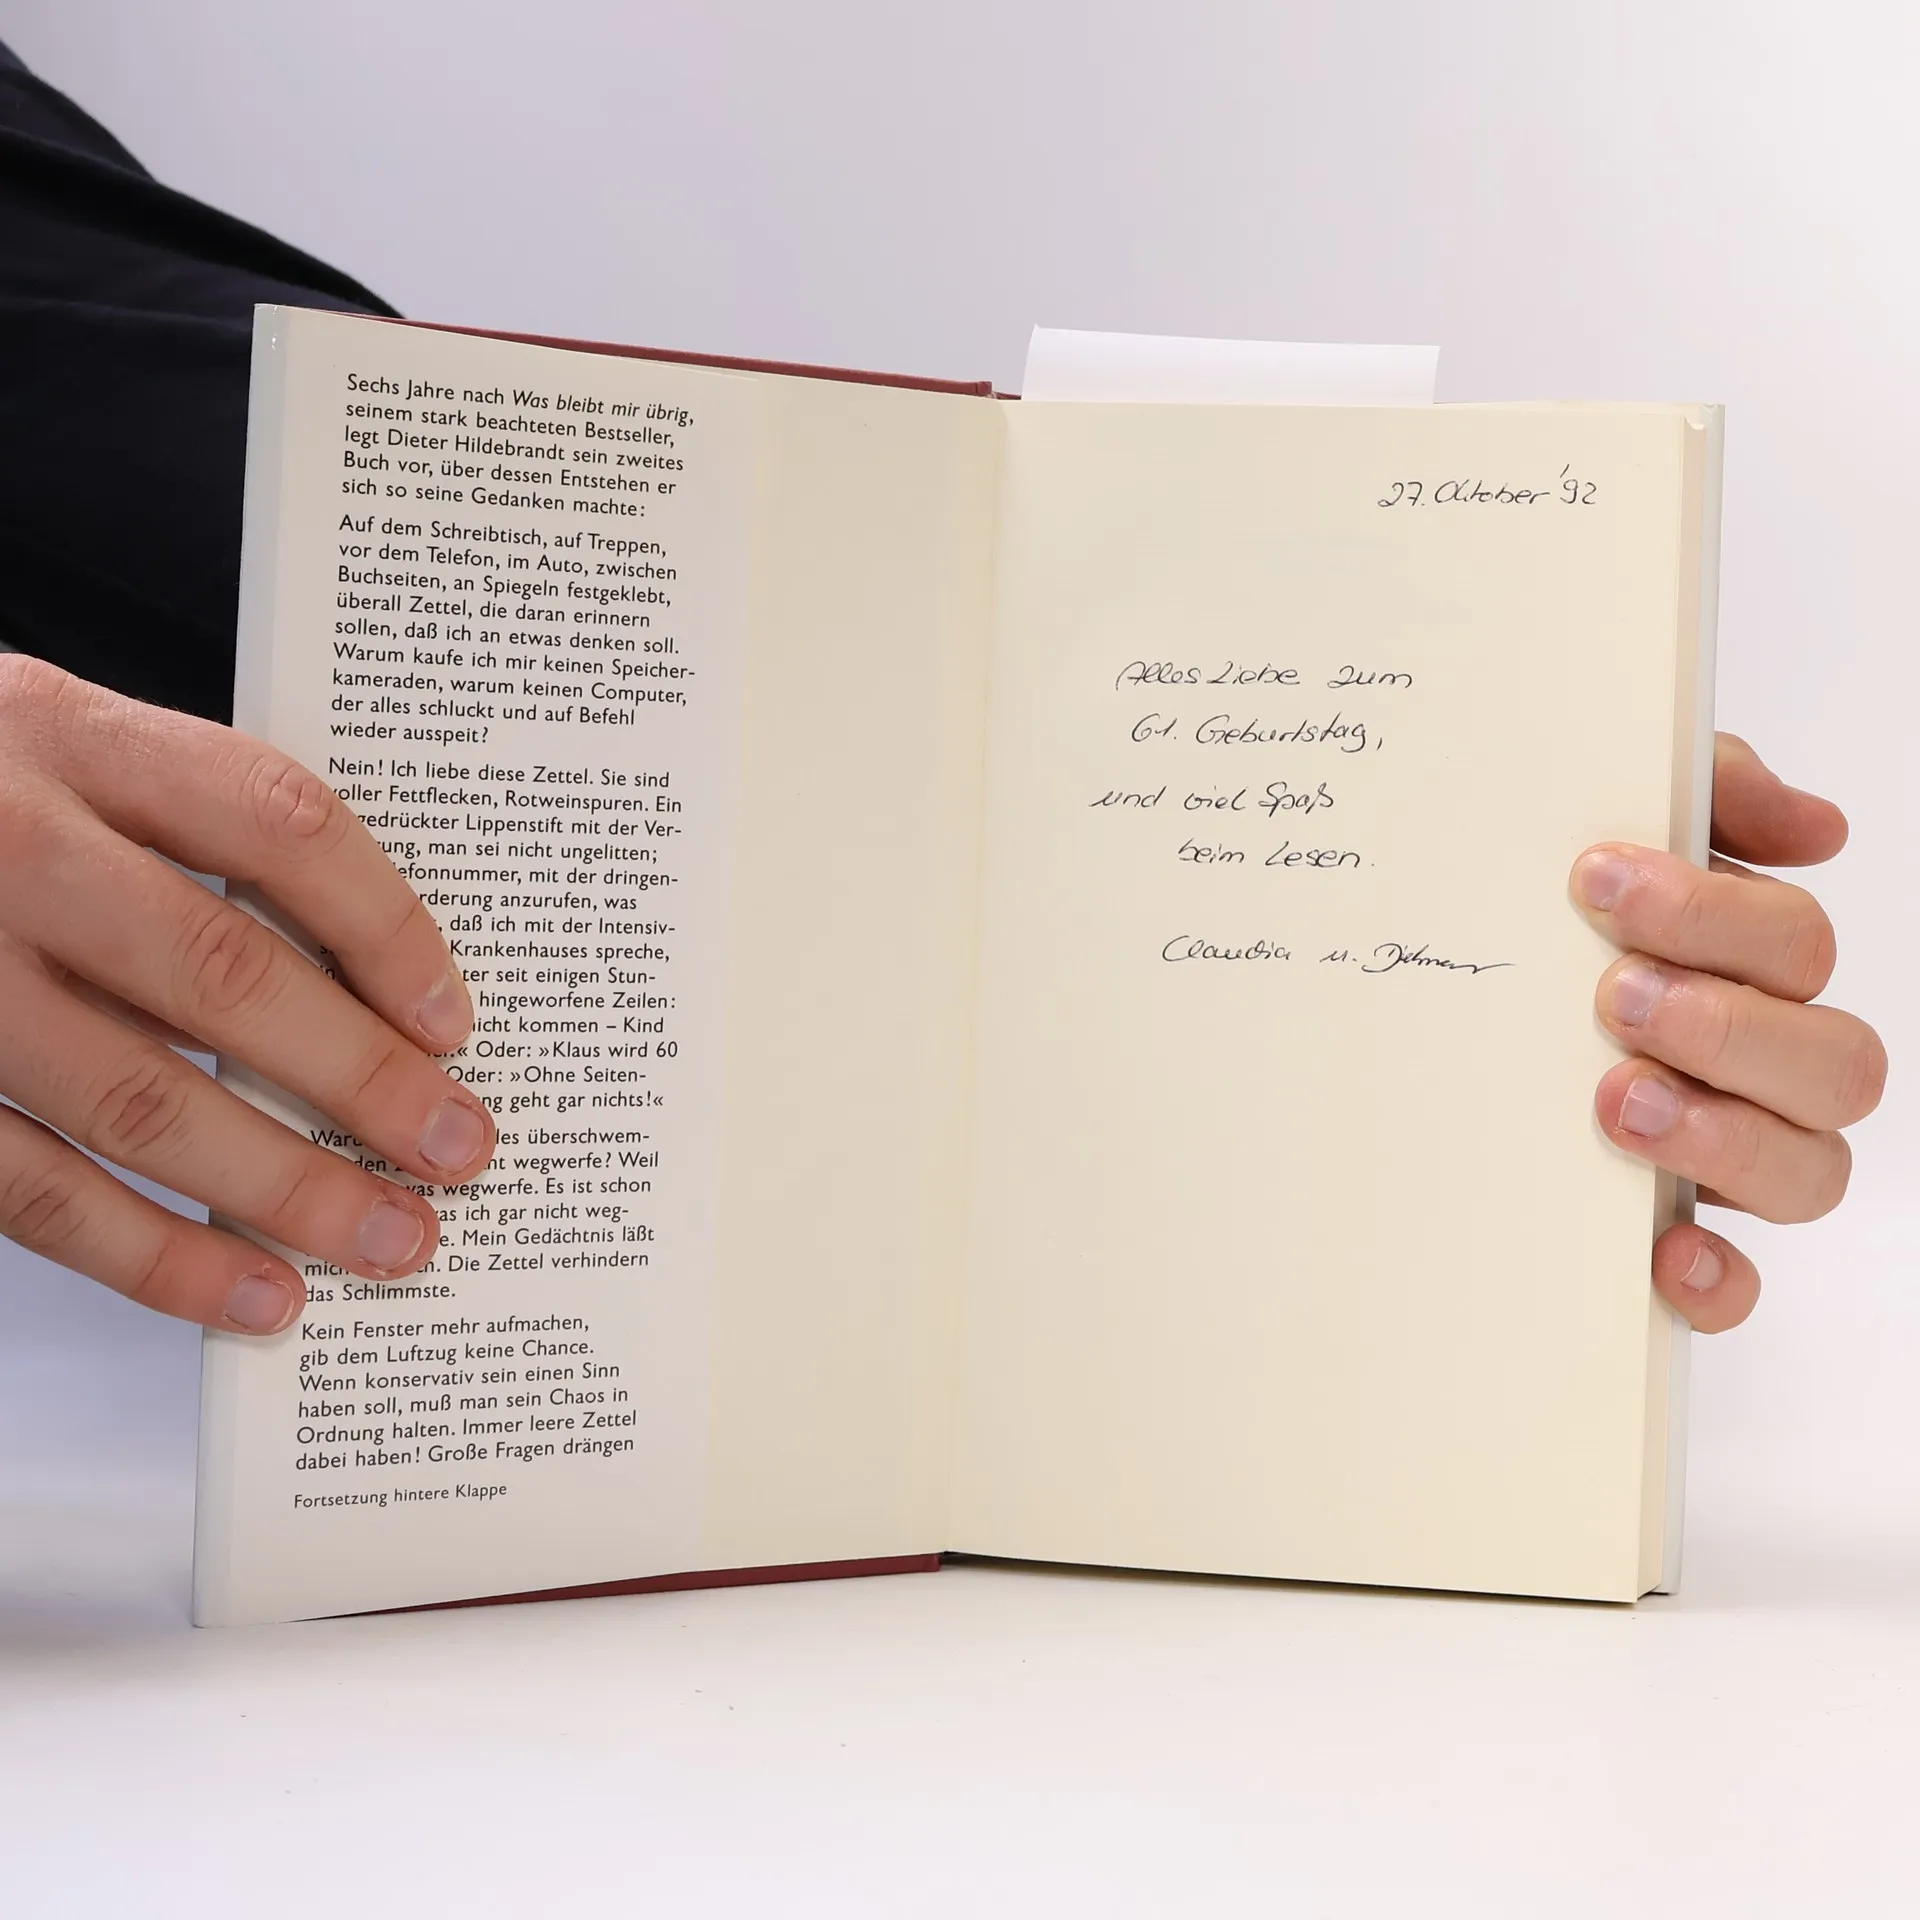 Sechs Jahre nach Was bleibt mir übrig,
seinem stark beachteten Bestseller,
legt Dieter Hildebrandt sein zweites
Buch vor, über dessen Entstehen er
sich so seine Gedanken machte:
Auf dem Schreibtisch, auf Treppen,
vor dem Telefon, im Auto, zwischen
Buchseiten, an Spiegeln festgeklebt,
überall Zettel, die daran erinnern
sollen, daß ich an etwas denken soll.
Warum kaufe ich mir keinen Speicher-
kameraden, warum keinen Computer,
der alles schluckt und auf Befehl
wieder ausspeit?
Nein! Ich liebe diese Zettel. Sie sind
voller Fettflecken, Rotweinspuren. Ein
gedrückter Lippenstift mit der Ver-
ung, man sei nicht ungelitten;
efonnummer, mit der dringen-
rderung anzurufen, was
, daß ich mit der Intensiv-
Krankenhauses spreche,
ter seit einigen Stun-
hingeworfene Zeilen:
nicht kommen – Kind
.« Oder: »Klaus wird 60
Oder: »Ohne Seiten-
ng geht gar nichts!«
les überschwem-
den nt wegwerfe? Weil
was wegwerfe. Es ist schon
as ich gar nicht weg-
e. Mein Gedächtnis läßt
mich n. Die Zettel verhindern
das Schlimmste.
Kein Fenster mehr aufmachen,
gib dem Luftzug keine Chance.
Wenn konservativ sein einen Sinn
haben soll, muß man sein Chaos in
Ordnung halten. Immer leere Zettel
dabei haben! Große Fragen drängen
Fortsetzung hintere Klappe
27. Oktober '92
Alles Liebe zum
61. Geburtstag,
und viel Spaß
beim Lesen.
Claudia u. Dietmar